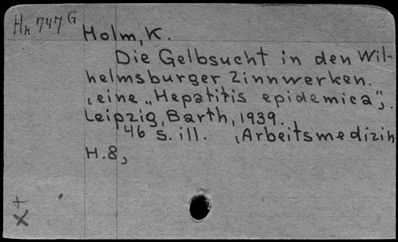 Hn 747 G
Holm, K.
Die Gelbsucht in den Wil-
helmsburger Zinnwerken.
, eine „Hepatitis epidemica",.
Leipzig, Barth, 1939.
46 S. ill. , Arbeitsmedizin
H.8,
+
X